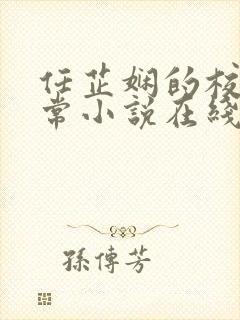 任芷娴的校
常小说在线
孫傳芳